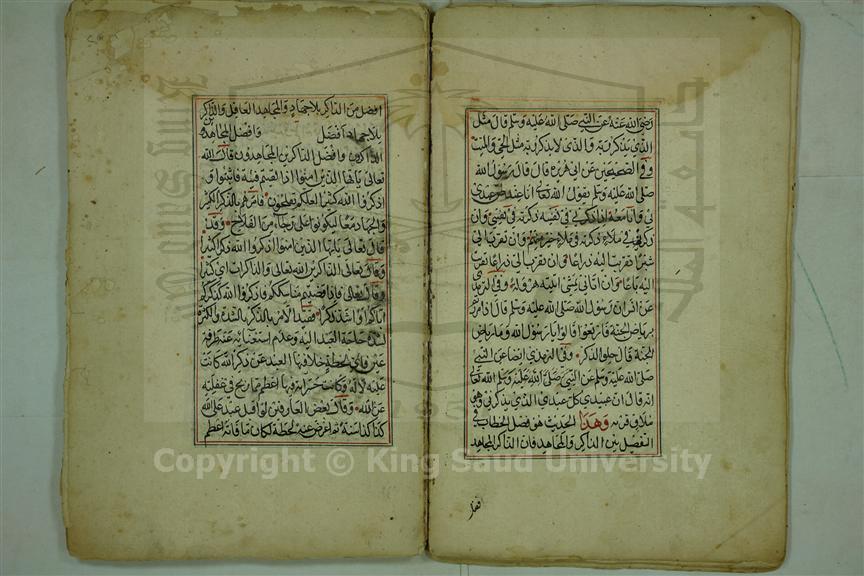 رضي الله عنه عن النبي صلى الله عليه وسلم قال مثل
الذي يذكر ربه والذي لا يذكر ربه مثل الحي والميت
وفي الصحيحين عن ابي هريرة قال قال رسول الله
صلى الله عليه وسلم يقول الله تعالى انا عند ظن عبدي
بي وانا معه اذا ذكرني فان ذكرني في نفسه ذكرته في نفسي وان
ذكرني في ملاء ذكرته في ملاء خير منهم وان تقرب الي
شبرا تقربت اليه ذراعا وان تقرب الي ذراعا تقربت
اليه باعا وان اتاني يمشي اتيته هرولة وفي الترمذي
عن انس ان رسول الله صلى الله عليه وسلم قال اذا مررتم
برياض الجنة فارتعوا قالوا يا رسول الله وما رياض
الجنة قال حلق الذكر وفي الترمذي ايضا عن النبي
صلى الله عليه وسلم عن النبي صلى الله عليه وسلم عن الله تعالى
انه قال ان عبدي كل عبدي الذي يذكرني وهو
ملاق قرنه وهذا الحديث هو فصل الخطاب في
التفصيل بين الذاكر والمجاهد فان الذاكر المجاهد
افضل من الذاكر بلا جهاد والمجاهد الغافل والذاكر
بلا جهاد افضل وافضل المجاهد
الذاكرين وافضل الذاكرين المجاهدون قال الله
تعالى يا ايها الذين امنوا اذا لقيتم فئة فاثبتوا و
اذكروا الله كثيرا لعلكم تفلحون فامرهم بالذكر الكثير
والجهاد معا ليكونوا على رجاء من الفلاح وقد
قال تعالى يا ايها الذين امنوا اذكروا الله ذكرا كثيرا
وقال تعالى والذاكرين الله تعالى والذاكرات اي كثيرا
وقال تعالى فاذا قضيتم مناسككم فاذكروا الله كذكركم
اباءكم او اشد ذكرا ففيه الامر بالذكر بالشدة والكثرة
لشدة حاجة العبد اليه وعدم استغنائه عنه طرفة
عين فاي لحظة خلا فيها العبد عن ذكر الله كانت
عليه لا له وكانت خسرانه فيها اعظم مما ربح في غفلته
عن الله وقال بعض العارفين لو اقبل عبد على الله
كذا كذا سنة ثم اعرض عنه لحظة لكان ما فاته اعظم
فضل
Copyright © King Saud University
1957